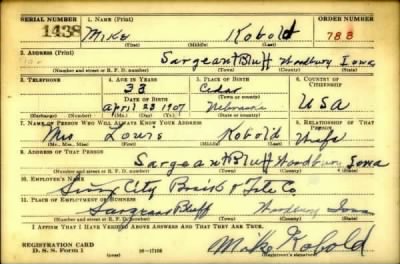 SERIAL NUMBER 1. NAME (Print) ORDER NUMBER
1438 Mike Kobold 788
(First) (Middle) (Last)
2. ADDRESS (Print)
Sergeant Bluff Woodbury Iowa
(Number and street or R. F. D. number) (Town) (County) (State)
3. TELEPHONE 4. AGE IN YEARS 5. PLACE OF BIRTH 6. COUNTRY OF CITIZENSHIP
33 Cedar
DATE OF BIRTH (Town or county)
April 23 1907 Nebraska USA
(Exchange) (Number) (Mo.) (Day) (Yr.) (State or country)
7. NAME OF PERSON WHO WILL ALWAYS KNOW YOUR ADDRESS 8. RELATIONSHIP OF THAT PERSON
Mrs Louis Kobold Wife
(Mr., Mrs., Miss) (First) (Middle) (Last)
9. ADDRESS OF THAT PERSON
Sergeant Bluff Woodbury Iowa
(Number and street or R. F. D. number) (Town) (County) (State)
10. EMPLOYER'S NAME
City Brick & Tile Co
11. PLACE OF EMPLOYMENT OR BUSINESS
Sergeant Bluff Woodbury Iowa
(Number and street or R. F. D. number) (Town) (County) (State)
I AFFIRM THAT I HAVE VERIFIED ABOVE ANSWERS AND THAT THEY ARE TRUE.
REGISTRATION CARD
D. S. S. Form 1 16-17105 Mike Kobold
(Registrant's signature)